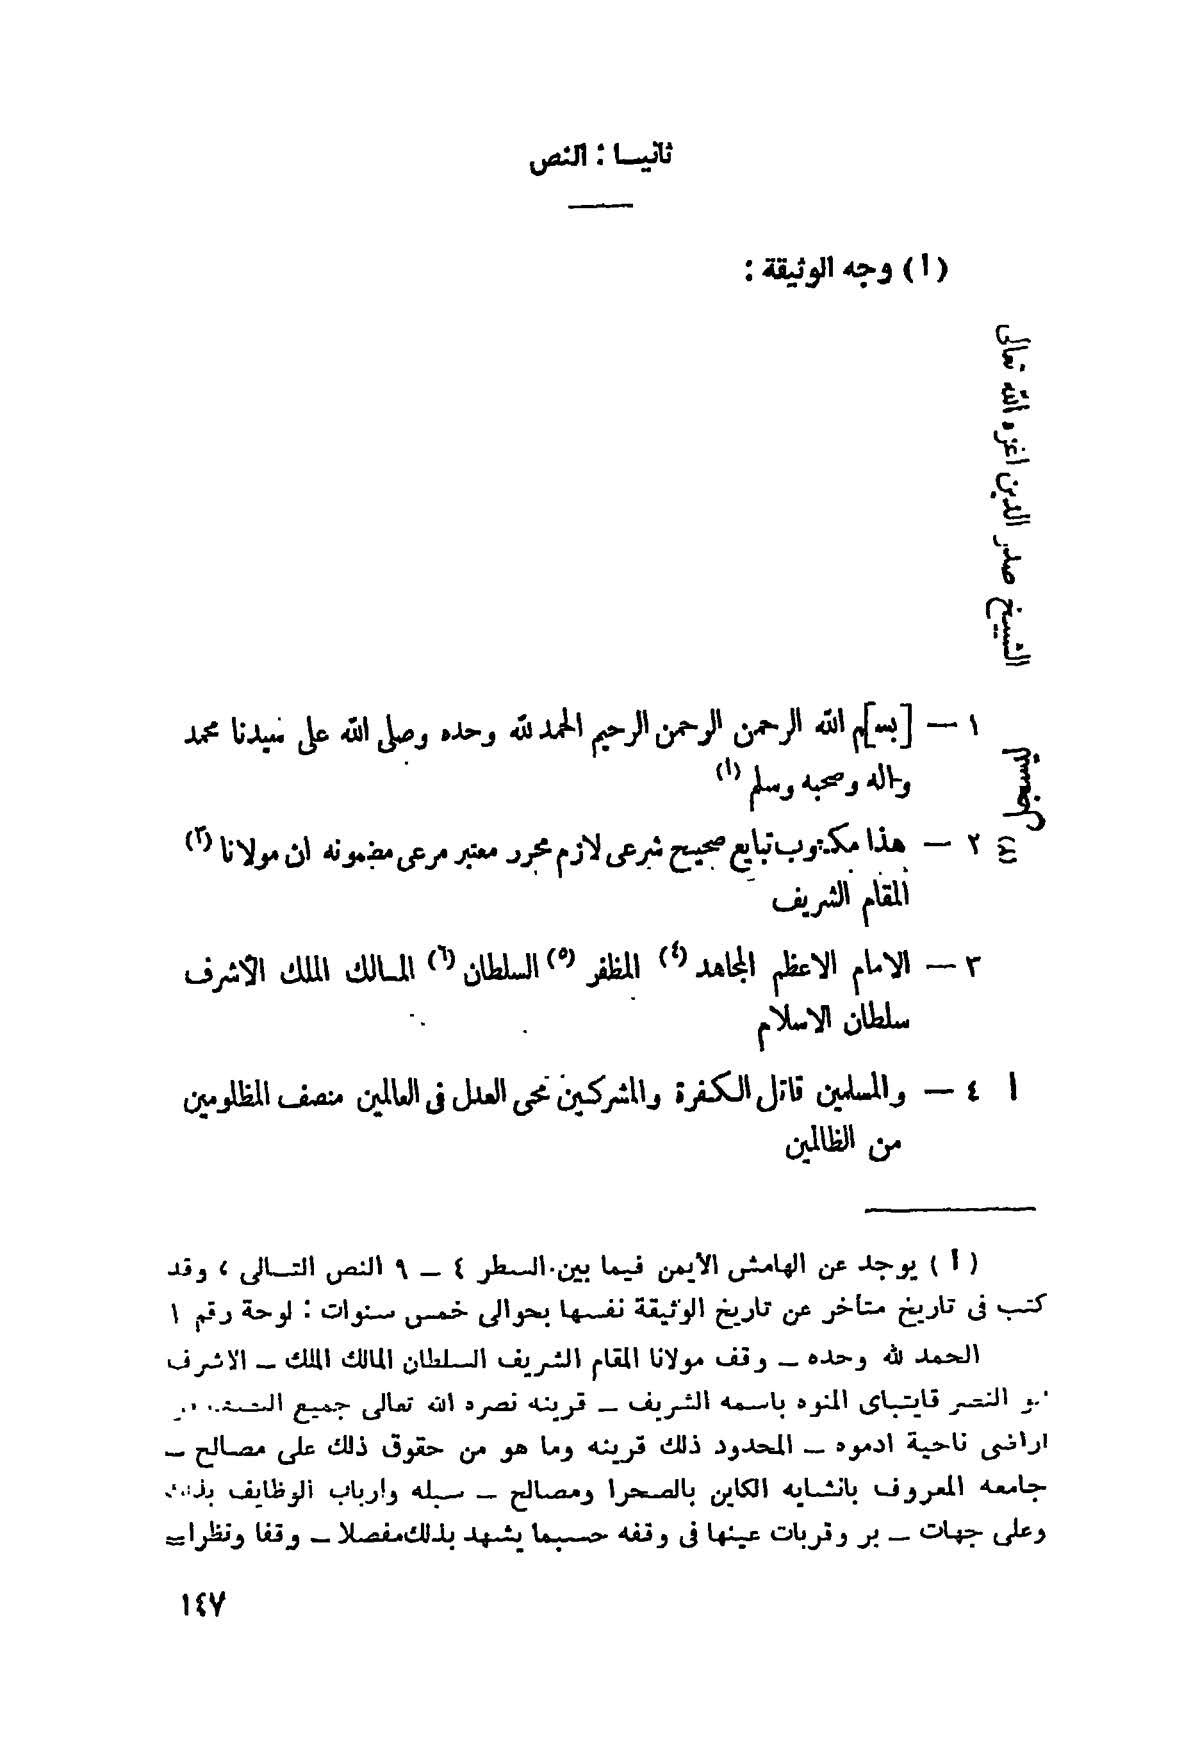 ثانيـا : النص
( أ ) وجه الوثيقة :
الشيخ صدر الدين اعزه الله تعالى
١ — [بسـ]م الله الرحمن الرحمن الرحيم الحمد لله وحده وصلى الله على سيدنا محمد
واله وصحبه وسلم (١)
٢ — هذا مكتوب تبايع صحيح شرعى لازم محرر معتبر مرعى مضمونه ان مولانا (٣)
المقام الشريف
٣ — الامام الاعظم المجاهد (٤) المظفر (٥) السلطان (٦) المـالك الملك الأشرف
سلطان الاسلام
أ ٤ — والمسلمين قاتل الكفرة والمشركين محى العدل فى العالمين منصف المظلومين
من الظالمين
( أ ) يوجد عن الهامش الأيمن فيما بين السطر ٤ ــ ٩ النص التـالى ، وقد
كتب فى تاريخ متأخر عن تاريخ الوثيقة نفسها بحوالى خمس سنوات : لوحة رقم ١
الحمد لله وحده ــ وقف مولانا المقام الشريف السلطان المالك الملك ــ الاشرف
النصر قايتباى المنوه باسمه الشريف ــ قرينه نصره الله تعالى جميع
اراضى ناحية ادموه ــ المحدود ذلك قرينه وما هو من حقوق ذلك على مصالح ــ
جامعه المعروف بانشايه الكاين بالصحرا ومصالح ــ سبله وارباب الوظايف
وعلى جهات ــ بر وقربات عينها فى وقفه حسبما يشهد بذلك مفصلا ــ وقفا ونظرا=
١٤٧